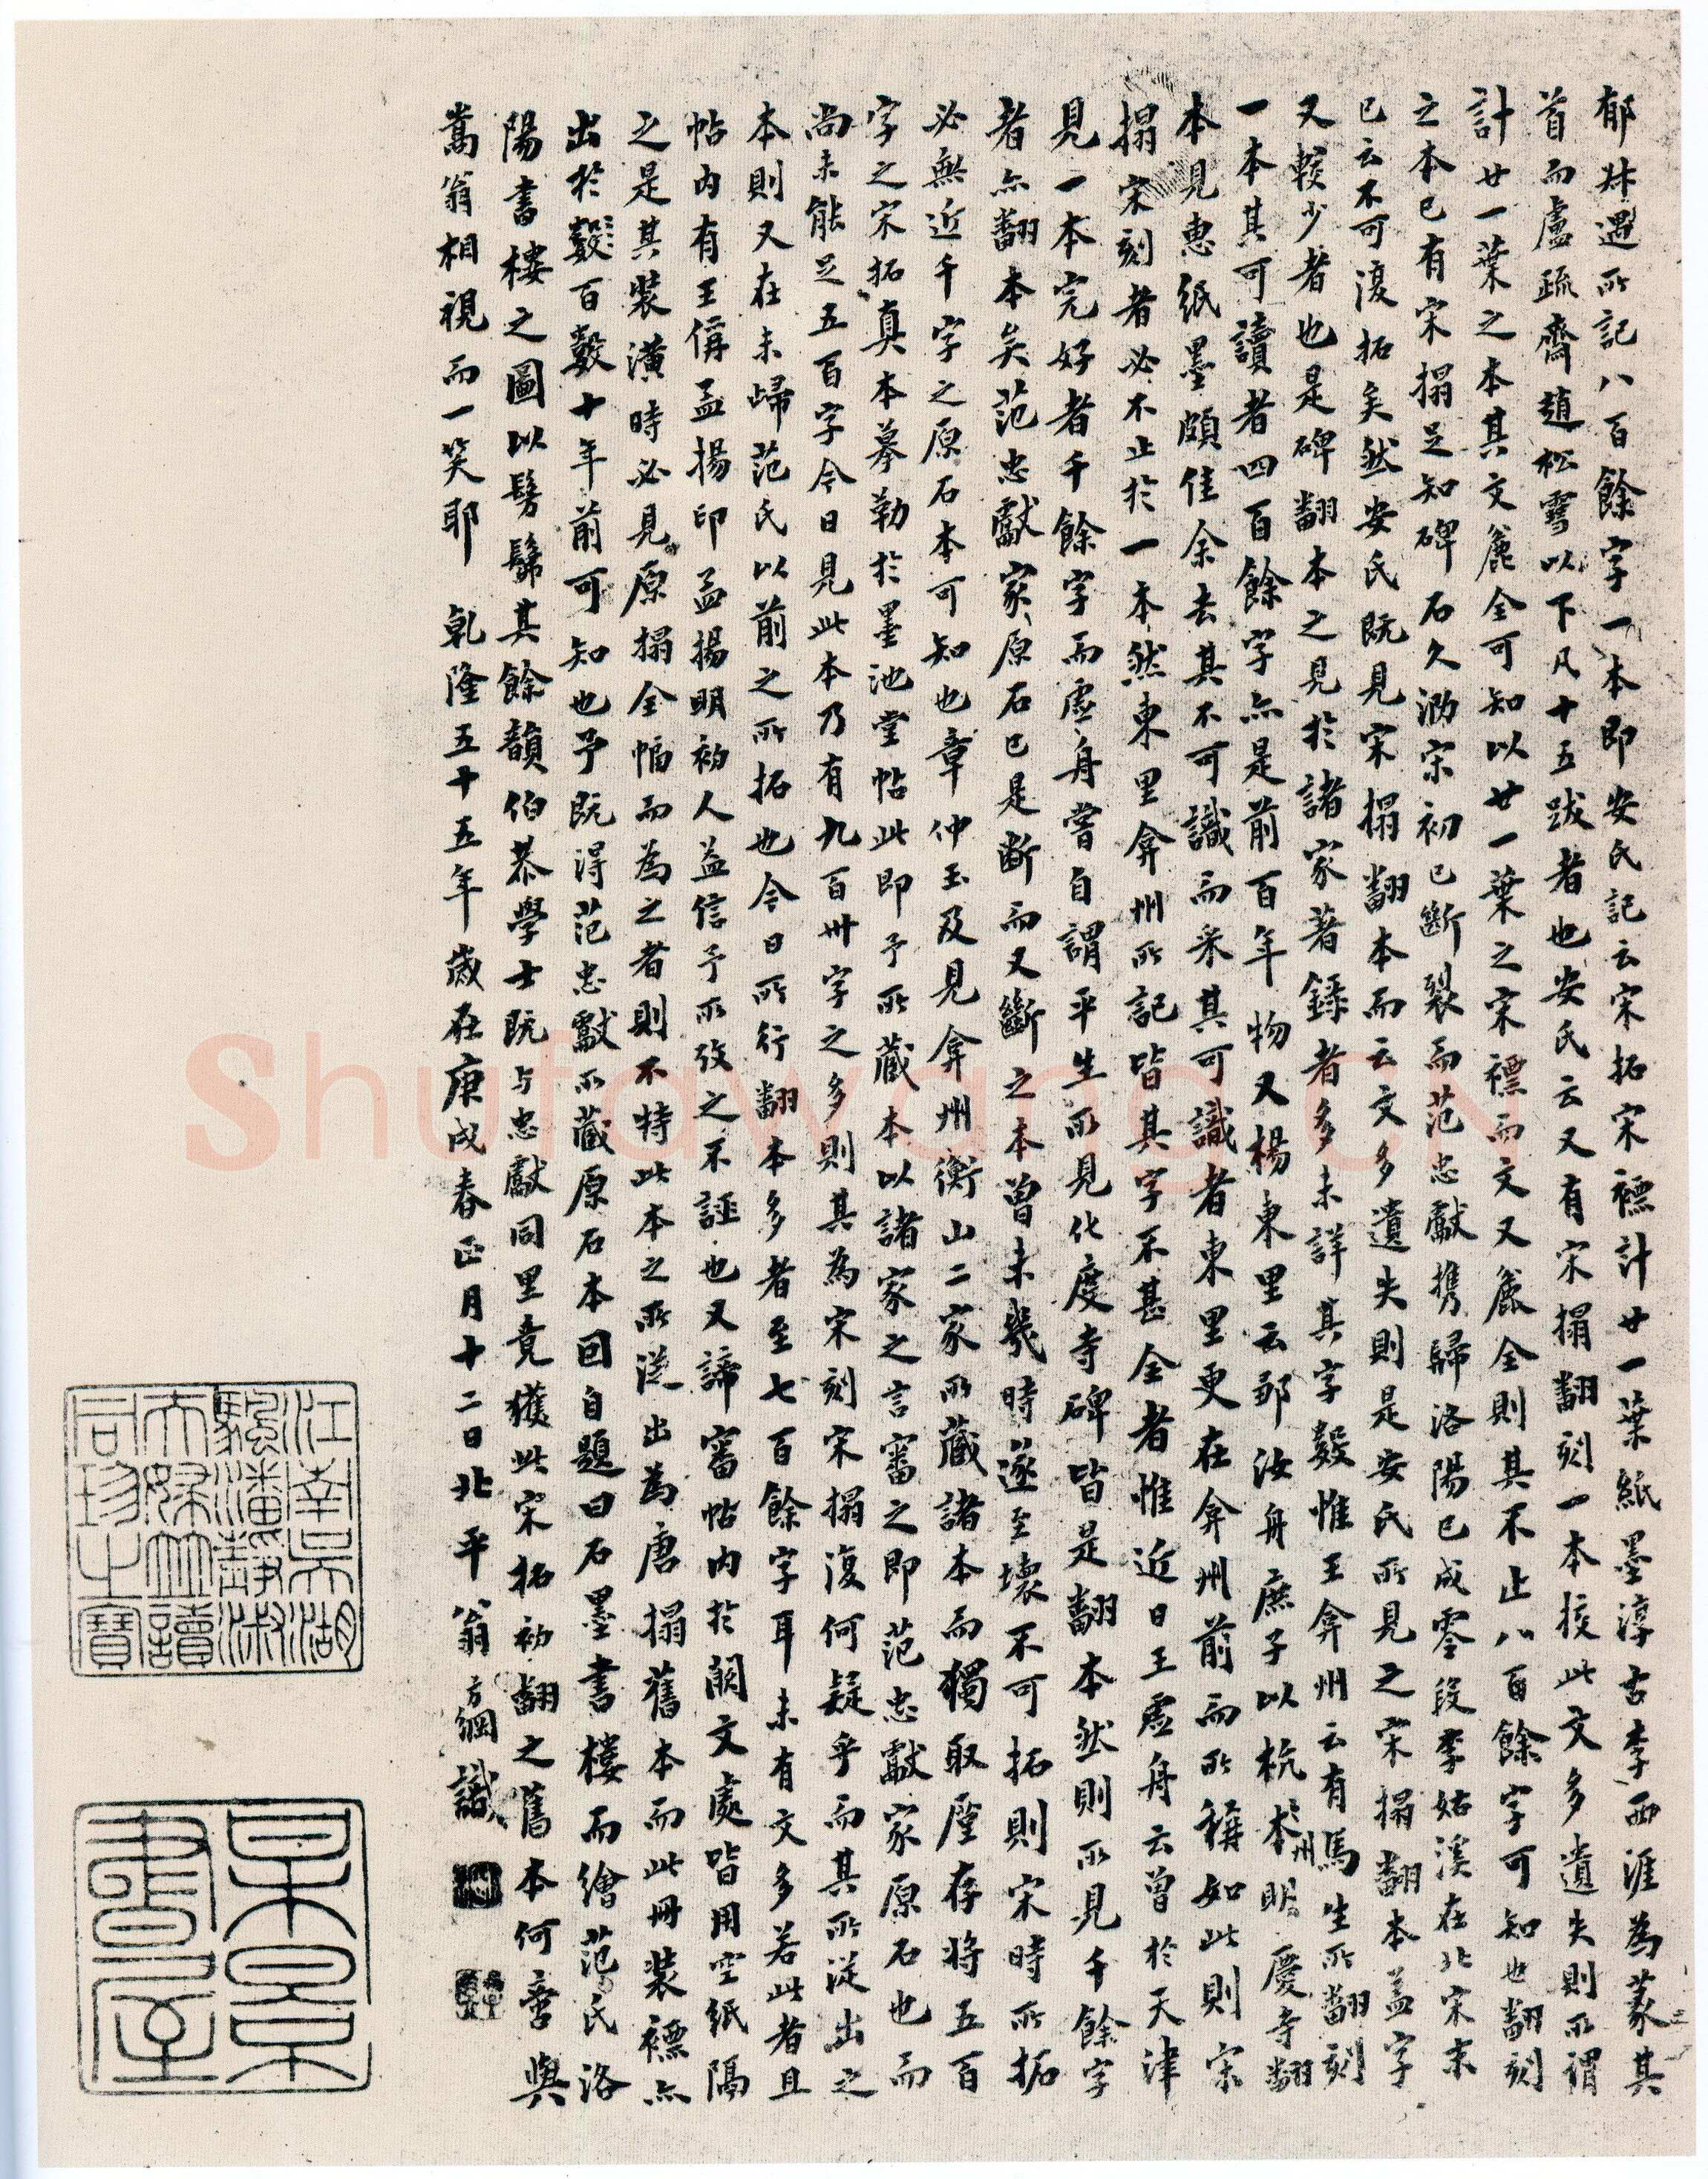 郁林遇所記八百餘字一本即安氏記云宋拓宋褾計廿一葉紙墨淳古李西涯為篆其
首而盧疏齋趙松雪以下凡十五跋者也安氏云又有宋搨翻刻一本挍此文多遺失則所謂
計廿一葉之本其文麄全可知以廿一葉之宋褾而文又麄全則其不止八百餘字可知也翻刻
之本已有宋搨足知碑石久泐宋初已斷裂而范忠獻攜歸洛陽已成零段李姑溪在北宋末
已云不可復拓矣然安氏既見宋搨翻本而云文多遺失則是安氏所見之宋搨翻本蓋字
又較少者也是碑翻本之見於諸家著錄者多未詳其字數惟王弇州云有馬生所翻刻
一本其可讀者四百餘字亦是前百年物又楊東里云鄒汝舟庶子以杭州本明慶寺翻
本見惠紙墨頗佳余去其不可識而采其可識者東里更在弇州前而所稱如此則宋
搨宋刻者必不止於一本然東里弇州所記皆其字不甚全者惟近日王虛舟云曾於天津
見一本完好者千餘字而虛舟嘗自謂平生所見化度寺碑皆是翻本然則所見千餘字
者亦翻本矣范忠獻家原石已是斷而又斷之本曾未幾時遂至壞不可拓則宋時所拓
必無近千字之原石本可知也章仲玉及見弇州衡山二家所藏諸本而獨取厪存將五百
字之宋拓真本摹勒於墨池堂帖此即予所藏本以諸家之言審之即范忠獻家原石也而
尚未能足五百字今日見此本乃有九百卅字之多則其為宋刻宋搨復何疑乎而其所從出之
本則又在未歸范氏以前之所拓也今日所行翻本多者至七百餘字耳未有文多若此者且
帖内有王偁孟揚印孟揚明初人益信予所攷之不誣也又諦審帖内於闕文處皆用空紙隔
之是其裝潢時必見原搨全幅而為之者則不特此本之所從出為唐搨舊本而此冊裝褾亦
出於數百數十年前可知也予既得范忠獻所藏原石本回自題曰石墨書樓而繪范氏洛
陽書樓之圖以髣髴其餘韻伯恭學士既与忠獻同里竟獲此宋拓初翻之舊本何啻與
蒿翁相視而一笑耶 乾隆五十五年歲在庚戌春正月十二日北平翁方綱識
江南吳湖
驄潘靜淑
夫婦竝讀
同珍之寶
某景
書屋
Shufawang.CN